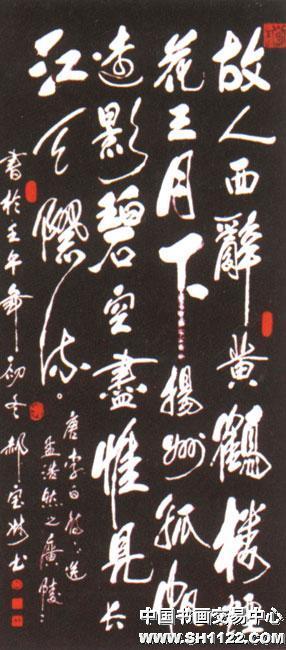 故人西辭黄鶴楼煙
花三月下揚州孤帆
遠影碧空盡惟見長
江天際流。
唐李白詩送
孟浩然之廣陵
書於壬午年初冬郝宝书
中国书画交易中心
WWW.SH1122.COM